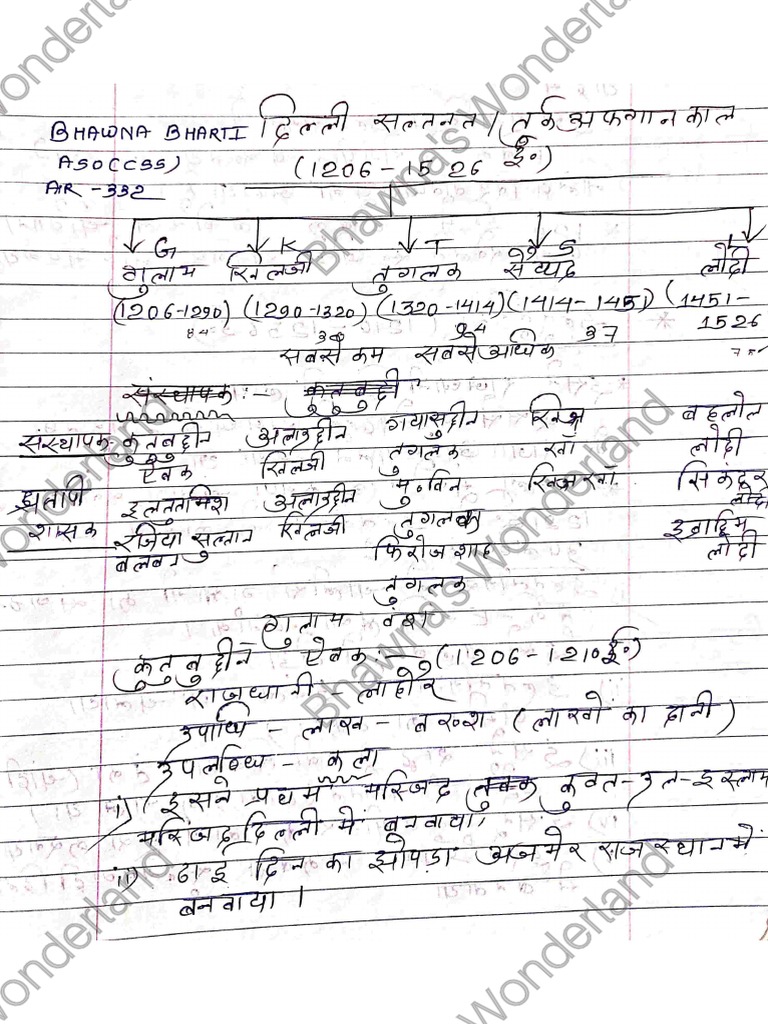 BHAWNA BHARTI दिल्ली सल्तनत / तुर्क अफगान काल
ASO(CSS) (1206 - 1526 ई०)
AIR - 332
G K T S L
गुलाम खिलजी तुगलक सैय्यद लोदी
(1206-1290) (1290-1320) (1320-1414) (1414-1451) (1451-1526
84 30 94 37 75
सबसे कम सबसे अधिक
संस्थापक :- कुतुबुद्दी
संस्थापक कुतुबुद्दीन अलाउद्दीन गयासुद्दीन खिज्र बहलोल
ऐबक खिलजी तुगलक खाँ लोदी
प्रतापी इल्तुतमिश अलाउद्दीन मु० बिन खिज्र खाँ सिकंदर लोदी
शासक रजिया सुल्तान खिलजी तुगलक इब्राहिम
बलबन फिरोज शाह लोदी
तुगलक
गुलाम वंश
कुतुबुद्दीन ऐबक :- (1206-1210ई०)
राजधानी - लाहौर
उपाधि - लाख - बख्श (लाखो का दानी)
उपलब्धि - कला
i) इसने प्रथम मस्जिद कुवत-उल-इस्लाम
मस्जिद दिल्ली में बनवाया,
ii) ढाई दिन का झोपड़ा अजमेर राजस्थान में
बनवाया ।
Bhawna's Wonderland